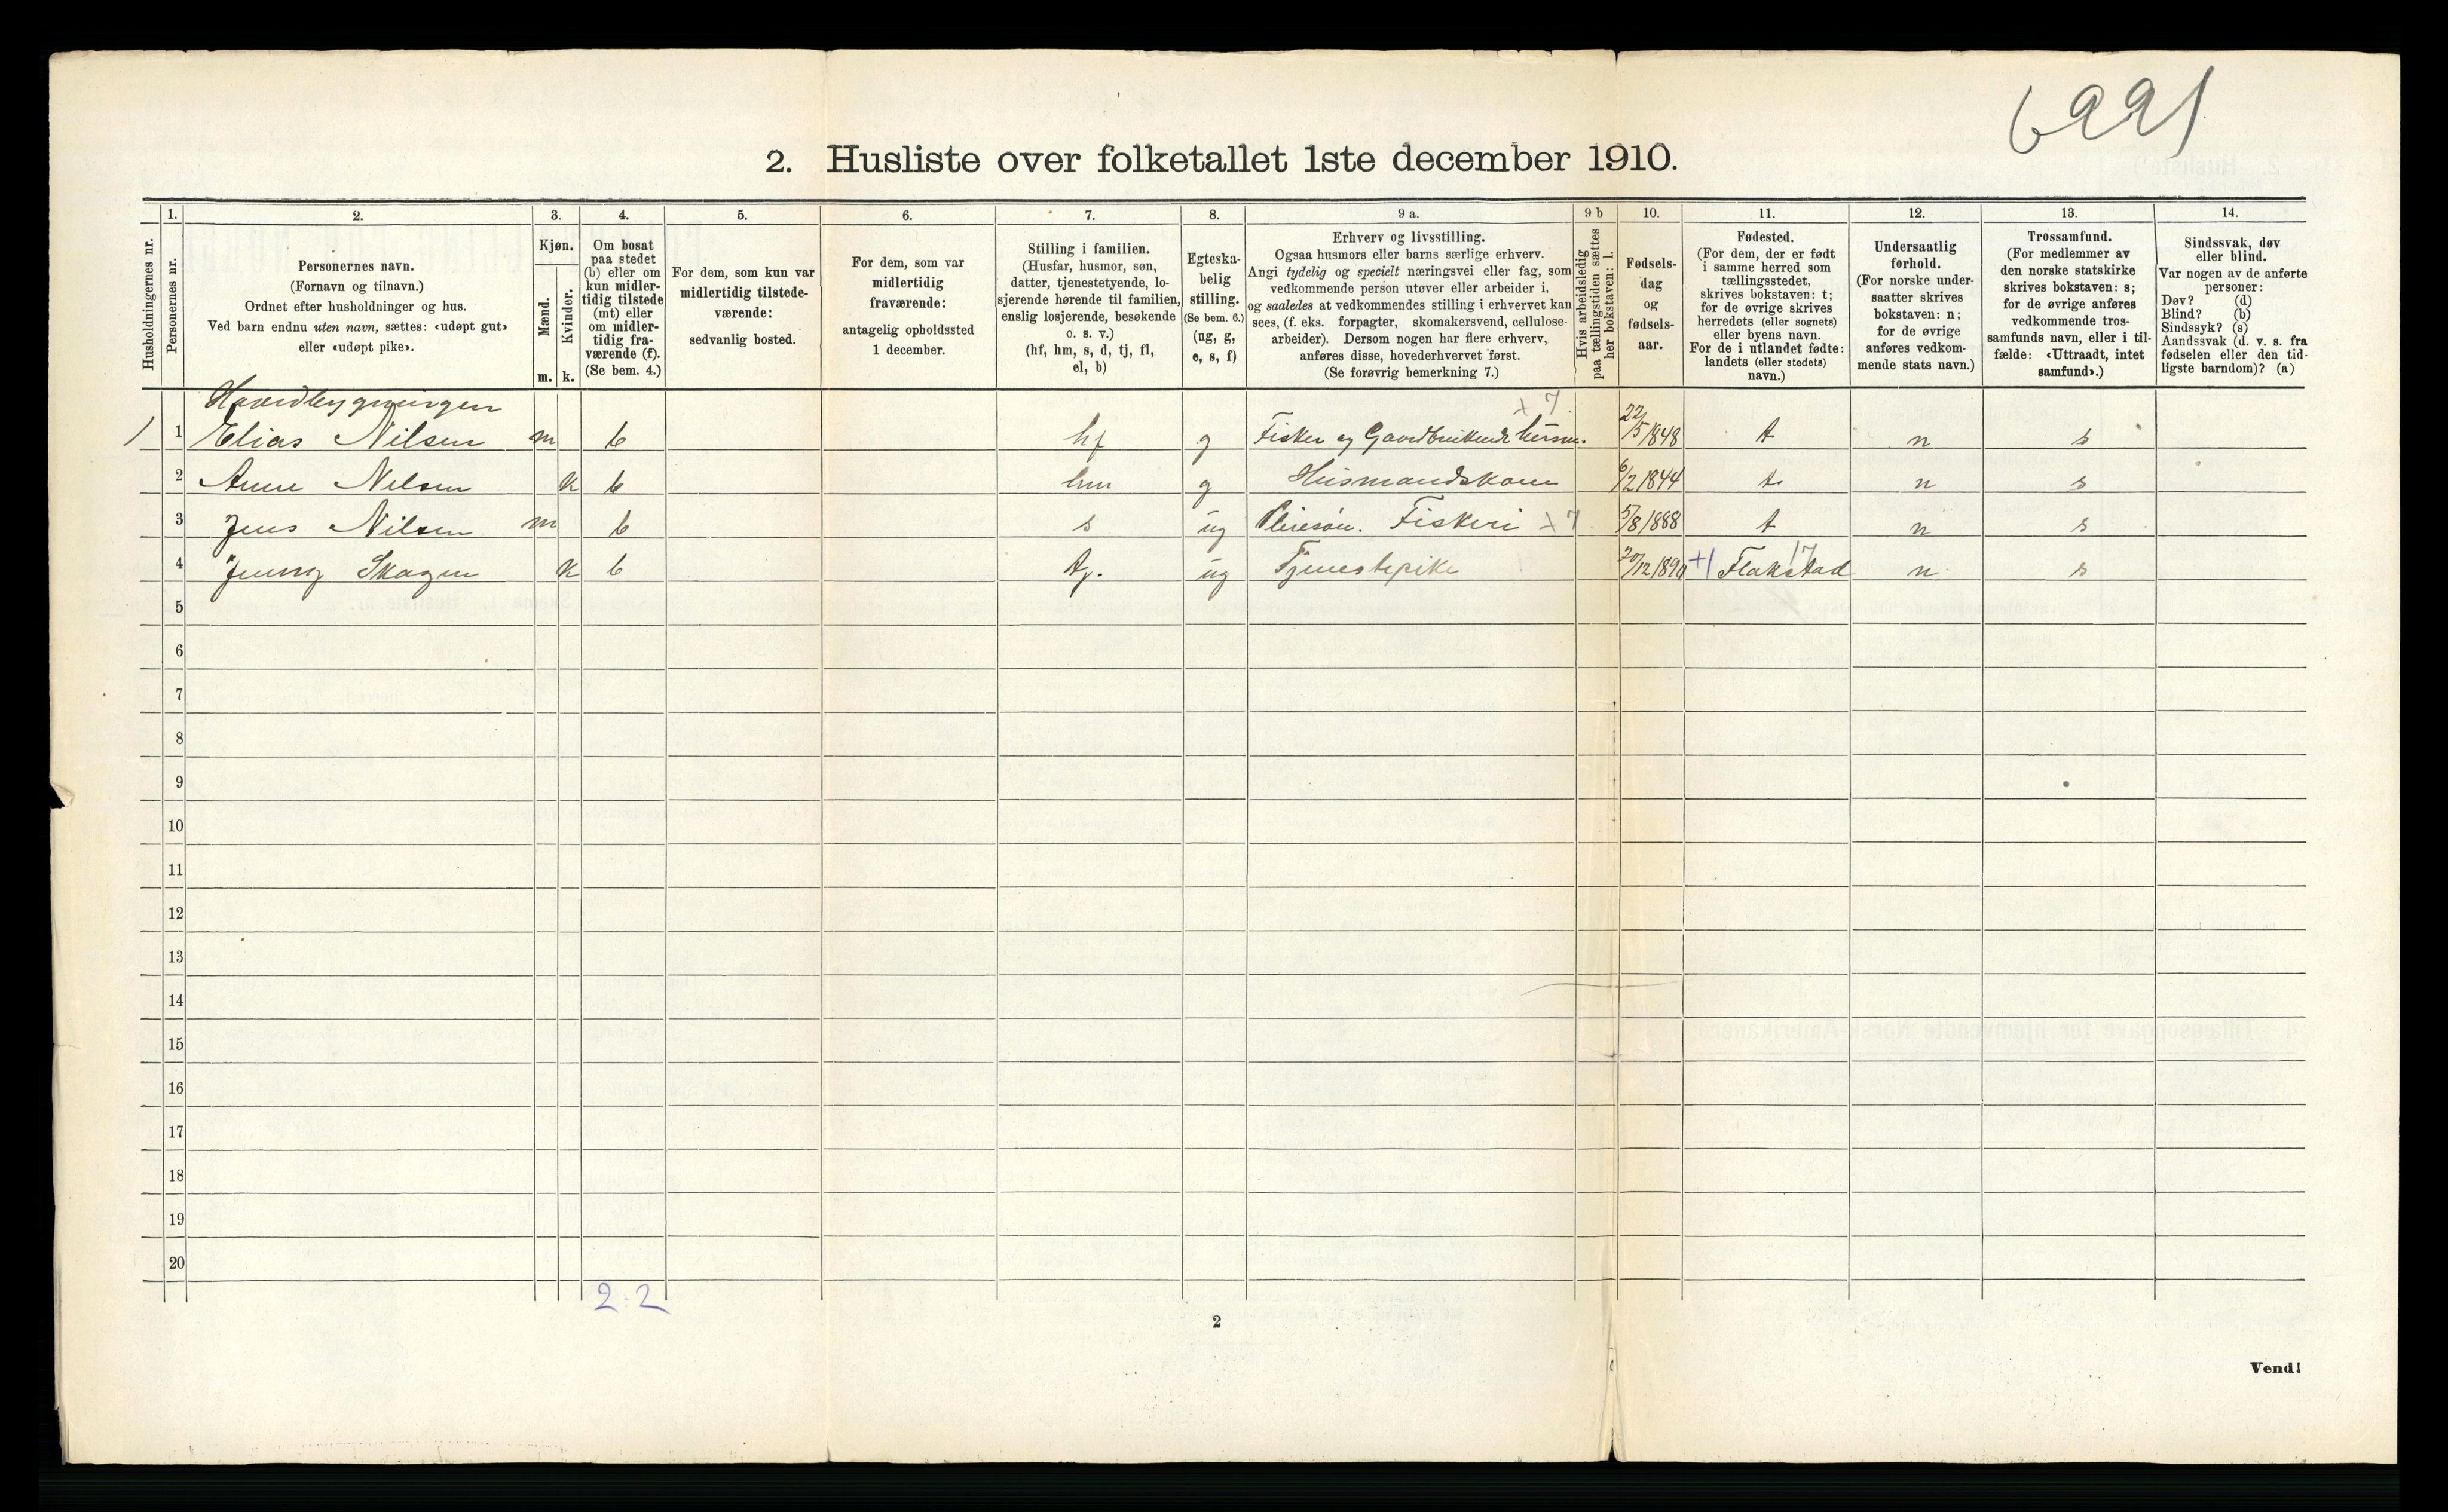 6991
2. Husliste over folketallet 1ste december 1910.
1. 2. 3. 4. 5. 6. 7. 8. 9 a. 9 b 10. 11. 12. 13. 14.
Husholdningernes nr.
Personernes nr.
Personernes navn.
(Fornavn og tilnavn.)
Ordnet efter husholdninger og hus.
Ved barn endnu uten navn, sættes: «udøpt gut»
eller «udøpt pike».
Kjøn.
Mænd.
Kvinder.
m. k.
Om bosat
paa stedet
(b) eller om
kun midler-
tidig tilstede
(mt) eller
om midler-
tidig fra-
værende (f).
(Se bem. 4.)
For dem, som kun var
midlertidig tilstede-
værende:
sedvanlig bosted.
For dem, som var
midlertidig
fraværende:
antagelig opholdssted
1 december.
Stilling i familien.
(Husfar, husmor, søn,
datter, tjenestetyende, lo-
sjerende hørende til familien,
enslig losjerende, besøkende
o. s. v.)
(hf, hm, s, d, tj, fl,
el, b)
Egteska-
belig
stilling.
(Se bem. 6.)
(ug, g,
e, s, f)
Erhverv og livsstilling.
Ogsaa husmors eller barns særlige erhverv.
Angi tydelig og specielt næringsvei eller fag, som
vedkommende person utøver eller arbeider i,
og saaledes at vedkommendes stilling i erhvervet kan
sees, (f. eks. forpagter, skomakersvend, cellulose-
arbeider). Dersom nogen har flere erhverv,
anføres disse, hovederhvervet først.
(Se forøvrig bemerkning 7.)
Hvis arbeidsledig
paa tællingstiden sættes
her bokstaven: l.
Fødsels-
dag
og
fødsels-
aar.
Fødested.
(For dem, der er født
i samme herred som
tællingsstedet,
skrives bokstaven: t;
for de øvrige skrives
herredets (eller sognets)
eller byens navn.
For de i utlandet fødte:
landets (eller stedets)
navn.)
Undersaatlig
forhold.
(For norske under-
saatter skrives
bokstaven: n;
for de øvrige
anføres vedkom-
mende stats navn.)
Trossamfund.
(For medlemmer av
den norske statskirke
skrives bokstaven: s;
for de øvrige anføres
vedkommende tros-
samfunds navn, eller i til-
fælde: «Uttraadt, intet
samfund».)
Sindssvak, døv
eller blind.
Var nogen av de anførte
personer:
Døv? (d)
Blind? (b)
Sindssyk? (s)
Aandssvak (d. v. s. fra
fødselen eller den tid-
ligste barndom)? (a)
Hovedbygningen
1 1 Elias Nilsen m b hf g Fisker og Gaardbrukende husm. x 7. 22/5 1848 t n s
2 Anne Nilsen k b hm g Husmandskone 6/2 1844 t n s
3 Jens Nilsen m b s ug Fiskeri x 7 5/8 1888 t n s
4 Jenny Skagen k b tj. ug Tjenestepike 20/12 +1 Flakstad 17 n s
5
6
7
8
9
10
11
12
13
14
15
16
17
18
19
20
2 - 2
2
Vend!